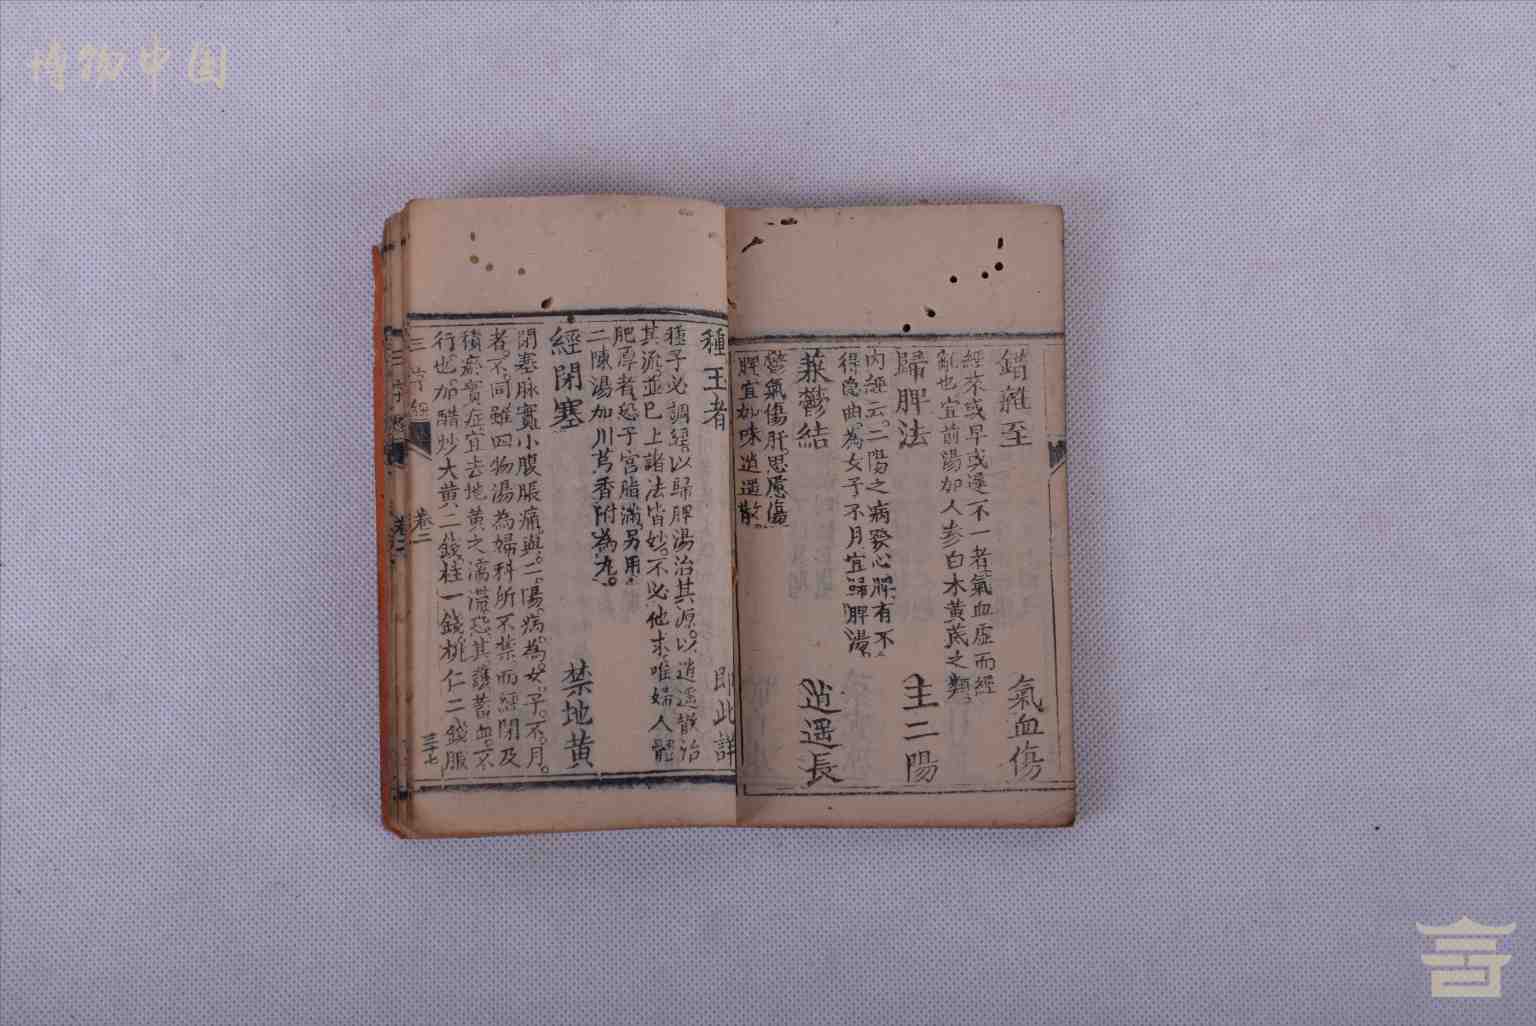 博物中国
錯雜至 氣血傷
經來或早或遲不一者氣血虛而經
亂也宜前湯加人參白木黃茋之類
歸脾法 主二陽
內經云二陽之病發心脾有不
得隱曲為女子不月宜歸脾湯
兼鬱結 逍遥長
鬱氣傷肝思慮傷
脾宜加味逍遥散
種玉者 即此詳
種子必調經以歸脾湯治其源以逍遥散治
其流並巳上諸法皆妙不必他求唯婦人體
肥厚者恐子宮脂滿另用
二陳湯加川芎香附為九
經閉塞 禁地黃
閉塞脉實小腹脹痛與二陽病為女子不月
者不同雖四物湯為婦科所不禁而經閉及
積瘀實症宜去地黃之濡滯恐其護蓄血不
行也加醋炒大黃二錢桂一錢桃仁二錢服
三字經 卷二 三七
三字經 卷二